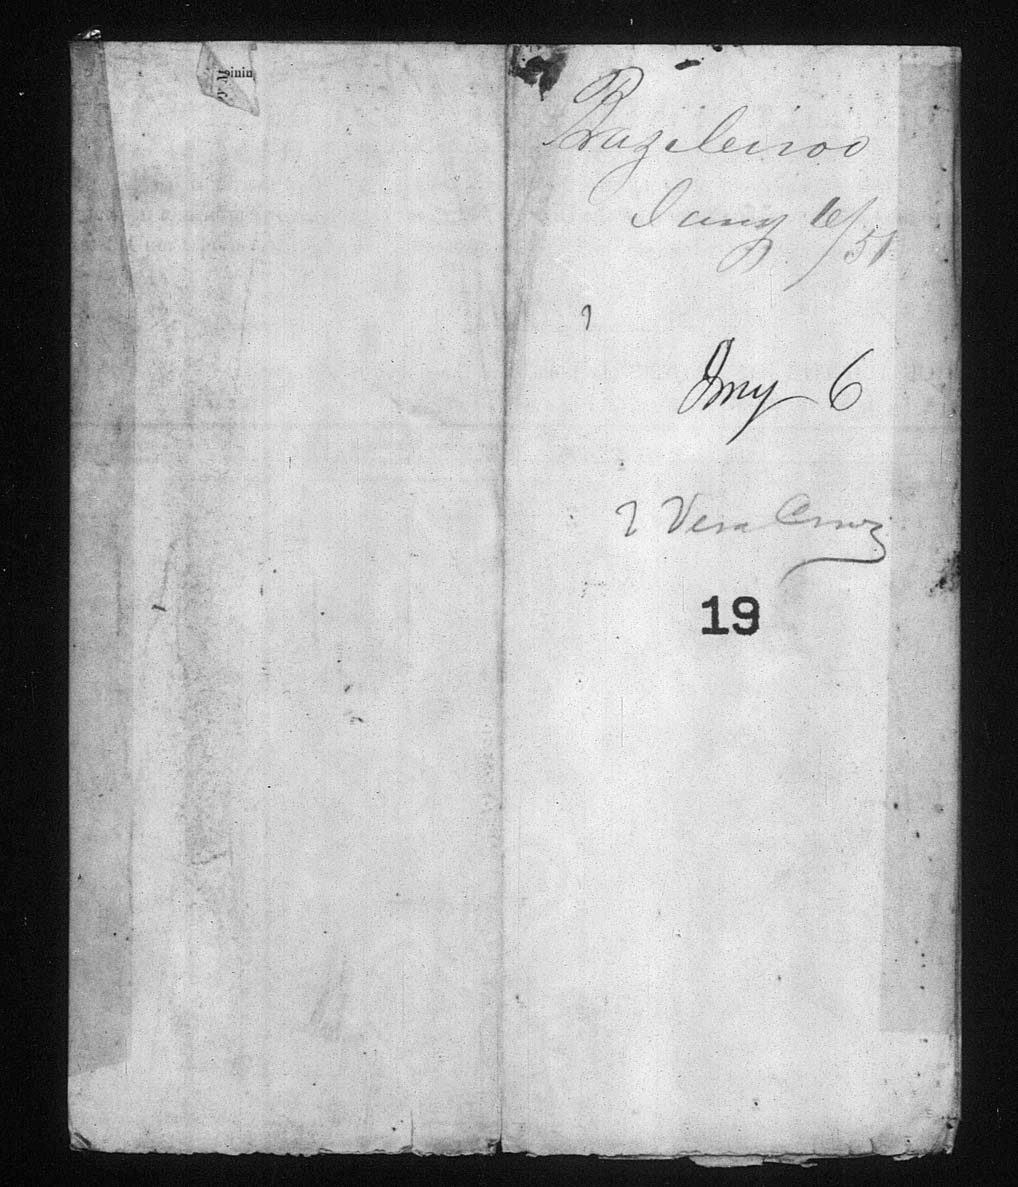 Brazileiroo
Jany 6/51
Jny 6
? Vera Cruz
19